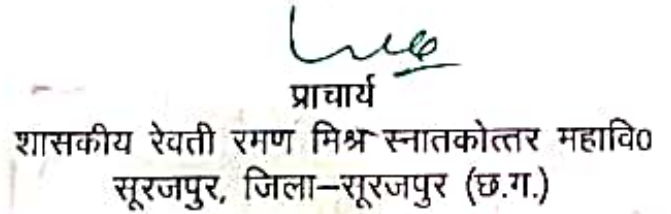 प्राचार्य
शासकीय रेवती रमण मिश्र स्नातकोत्तर महावि०
सूरजपुर, जिला–सूरजपुर (छ.ग.)